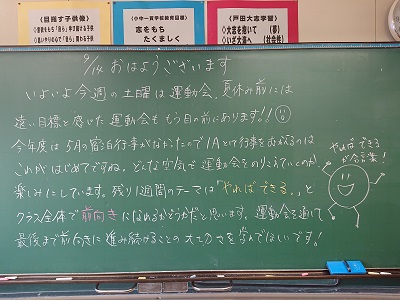 目指す子供像
小中一貫学校教育目標
志をもち
たくましく
戸田大志学習
◇大志を抱いて（夢）
◇いざ大海へ（社会性）
9/14 おはようございます
いよいよ今週の土曜は運動会。夏休み前には
遠い目標と感じた運動会ももう目の前にあります!!
今年度は5月の宿泊行事がなかったので1Aとして行事をむかえるのは
これがはじめてですね。どんな空気で運動会をのりこえていくのか
楽しみにしています。残り1週間のテーマは"やればできる"と
クラス全体で前向きになれるかどうかだと思います。運動会を通して
最後まで前向きに進み続けることの大切さを学んでほしいです!
やればできる
が合言葉!